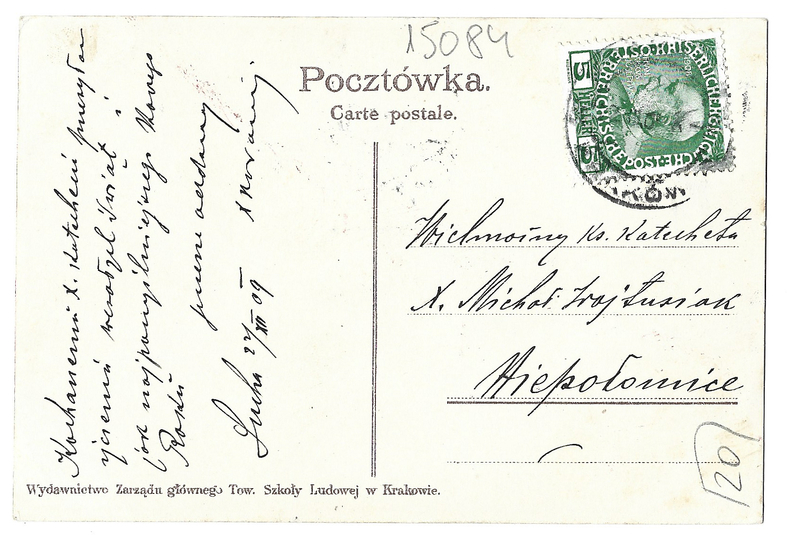 15084
Pocztówka.
Carte postale.
5 HELLER 5
KAISERLICHE
Kochanemu X. Katechecie przesyłam
życzenia wesołych Świąt i
jak najpomyślniejszego Nowego
Roku
szczerze oddany
X
Sucha 22/XII 09
Wielmożny Ks. Katecheta
X. Michał Wojtusiak
Niepołomice
20
Wydawnictwo Zarządu głównego Tow. Szkoły Ludowej w Krakowie.